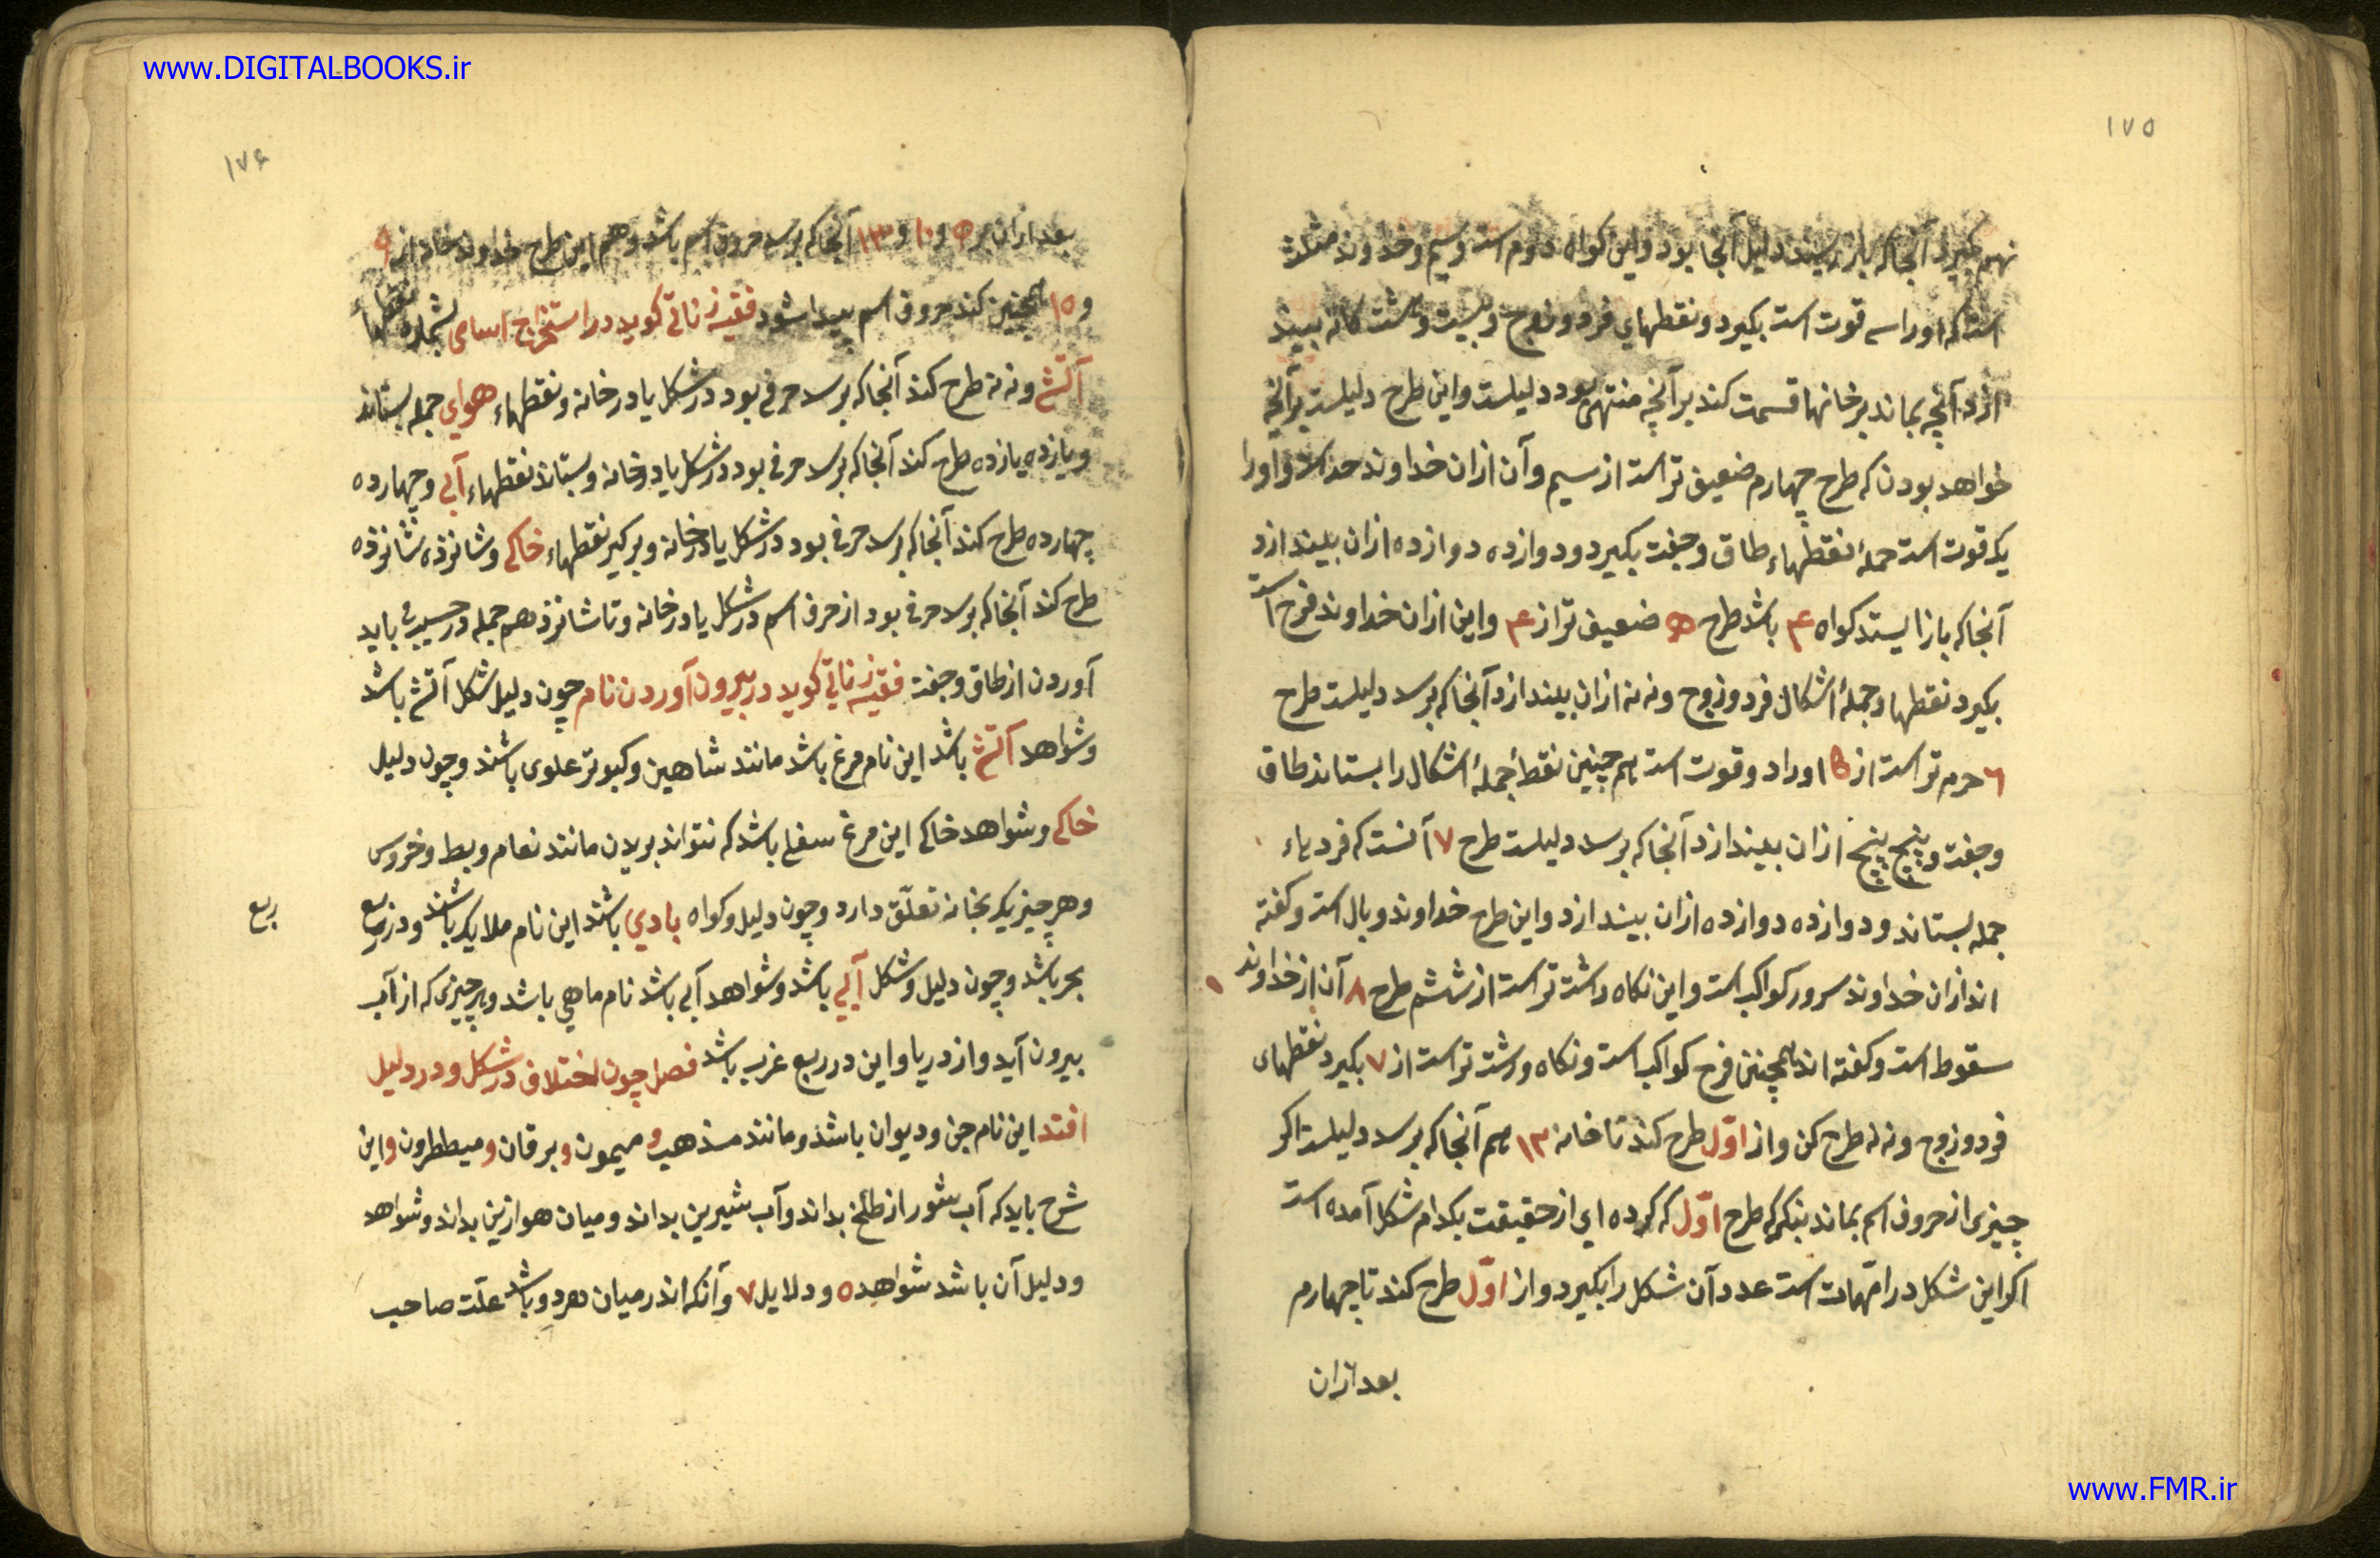 www.DIGITALBOOKS.ir
١٧٥
نهم بگیرد آنجا که باز رسید دلیل آنجا بود و این کواه دوم است وسیم و خداوند مثلثه
است که اورا سه قوت است بکیرد و نقطهای فرد و زوج و بیست و هشت کانه ببیند
ازد آنچه بماند بر خانها قسمت کند بر آنچه منتهی بود دلیلست و این طرح دلیلست بر آنچه
خواهد بودن که طرح چهارم ضعیف تر است از سیم و آن ازان خداوند حد است و اورا
یک قوت است جملهٔ نقطهاء طاق و جفت بکیرد و دوازده دوازده ازان بیندازد
آنجا که باز ایستد کواه ۴ باشد طرح ه ضعیف تر از ۴ و این ازان خداوند فرح است
بکیرد نقطها و جملهٔ اشکال فرد و زوج و نه نه ازان بیندازد آنجا که برسد دلیلست طرح
٦ تر است از اورا دو قوت است هم چنین نقطهٔ جملهٔ اشکال را بستاند طاق
و جفت و پنج پنج ازان بیندازد آنجا که برسد دلیلست طرح ٧ آنست که فردیاء
جمله بستاند و دوازده دوازده ازان بیندازد و این طرح خداوند وبال است و کفته
اند ازان خداوند سرور کواکب است و این نکاه داشت تر است از ششم طرح ٨ آن از خداوند
سقوط است و کفته اند همچنین فرح کواکب است و نکاه تر است از ٧ بکیرد نقطهای
فرد و زوج و نه نه طرح کن و از اوّل طرح کند تا خانه ١٣ هم آنجا که برسد دلیلست اکر
چیزی از حروف اسم بماند بنکر که طرح اوّل که کرده ای از حقیقت بکدام شکل آمده است
اکر این شکل در امّهات است عدد آن شکل را بکیرد و از اوّل طرح کند تا چهارم
بعد ازان
١٧۶
بعد ازان بر ٥ و ١٠ و ١٣ آنجا که برسد حروف اسم باشد و هم این طرح خداوند خانه از ٩
و ١٥ همچنین کند حروف اسم پیدا شود فقیه زناتی کوید در استخراج اسامی بشمارد نقطهاء
آتش و نه نه طرح کند آنجا که برسد حرفی بود در شکل یا در خانه و نقطهاء هوای جمله بستاند
و یازده یازده طرح کند آنجا که برسد حرفی بود در شکل یا در خانه و بستاند نقطهاء آبی و چهارده
چهارده طرح کند آنجا که برسد حرفی بود در شکل یا در خانه و برکیر نقطهاء خاکی و شانزده شانزده
طرح کند آنجا که برسد حرفی بود از حرف اسم در شکل یا در خانه و تا شانزدهم جمله در باید
آوردن از طاق و جفت فقیه زناتی کوید در بیرون آوردن نام چون دلیل شکل آتش باشد
و شواهد آتش باشد این نام مرغ باشد مانند شاهین و کبوتر علوی باشند و چون دلیل
خاکی و شواهد خاکی این مرغ سفلی باشد که نتواند بریدن مانند نعام و بط و خروس
و هر چیز یکه بخانه تعلّق دارد و چون دلیل و کواه بادی باشند این نام ملایکه باشند و در ربع
ربع
بحر باشد و چون دلیل و شکل آبی باشد و شواهد آبی باشد نام ماهی باشد و هر چیزی که از آب
بیرون آید و از دریا و این در ربع غرب باشد فصل چون اختلاف در شکل و در دلیل
افتد این نام جن و دیوان باشد و مانند مذهب و میمون و برقان و میططرون و این
شرح باید که آب شور از طلخ بداند و آب شیرین بداند و میان هوا زین بداند و شواهد
و دلیل آن باشد شواهد ٥ و دلایل ٧ و آنکه اندر میان هر دو باشد علّت صاحب
www.FMR.ir